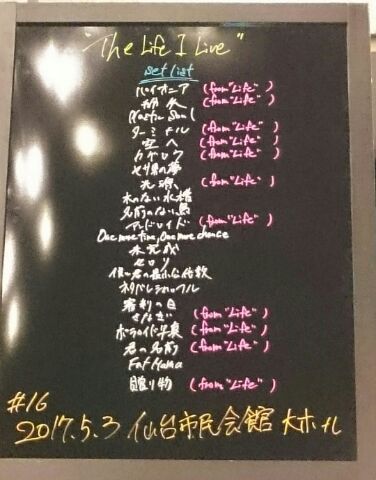 "The Life I Live"
set list
パイオニア (from "Life")
(from "Life")
Plastic Soul
ターミナル (from "Life")
空へ (from "Life")
カゲロウ (from "Life")
の夢
光源 (from "Life")
水のない水槽
名前のない鳥
アンドロイド (from "Life")
One more time, One more chance
未完成
セロリ
僕と君の最小公倍数
審判の日
さなぎ (from "Life")
ポラロイド写真 (from "Life")
君の名前 (from "Life")
Fat Mama
贈り物 (from "Life")
#16
2017.5.3 仙台市民会館 大ホール